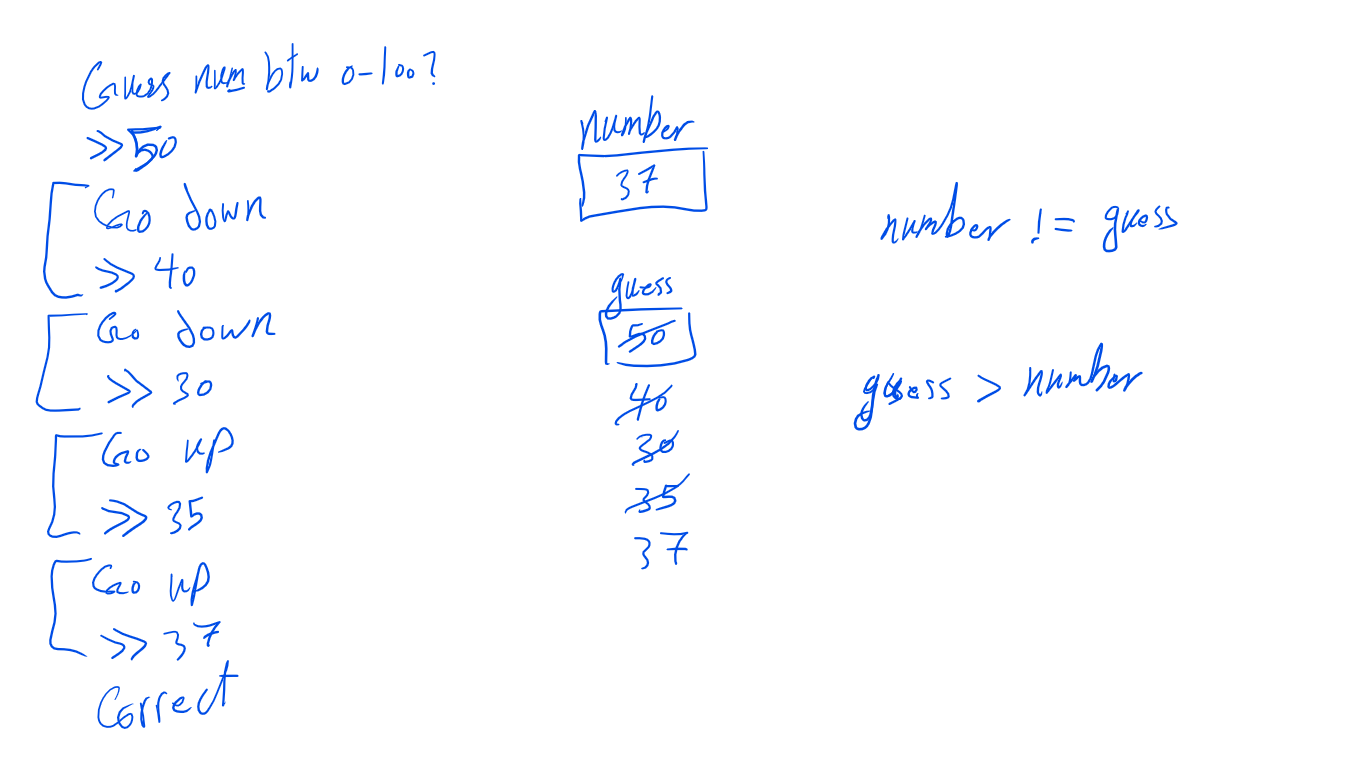 Guess num btw 0-100?
>> 50
Go down
>> 40
Go down
>> 30
Go up
>> 35
Go up
>> 37
Correct
number
37
guess
50
40
30
35
37
number != guess
guess > number